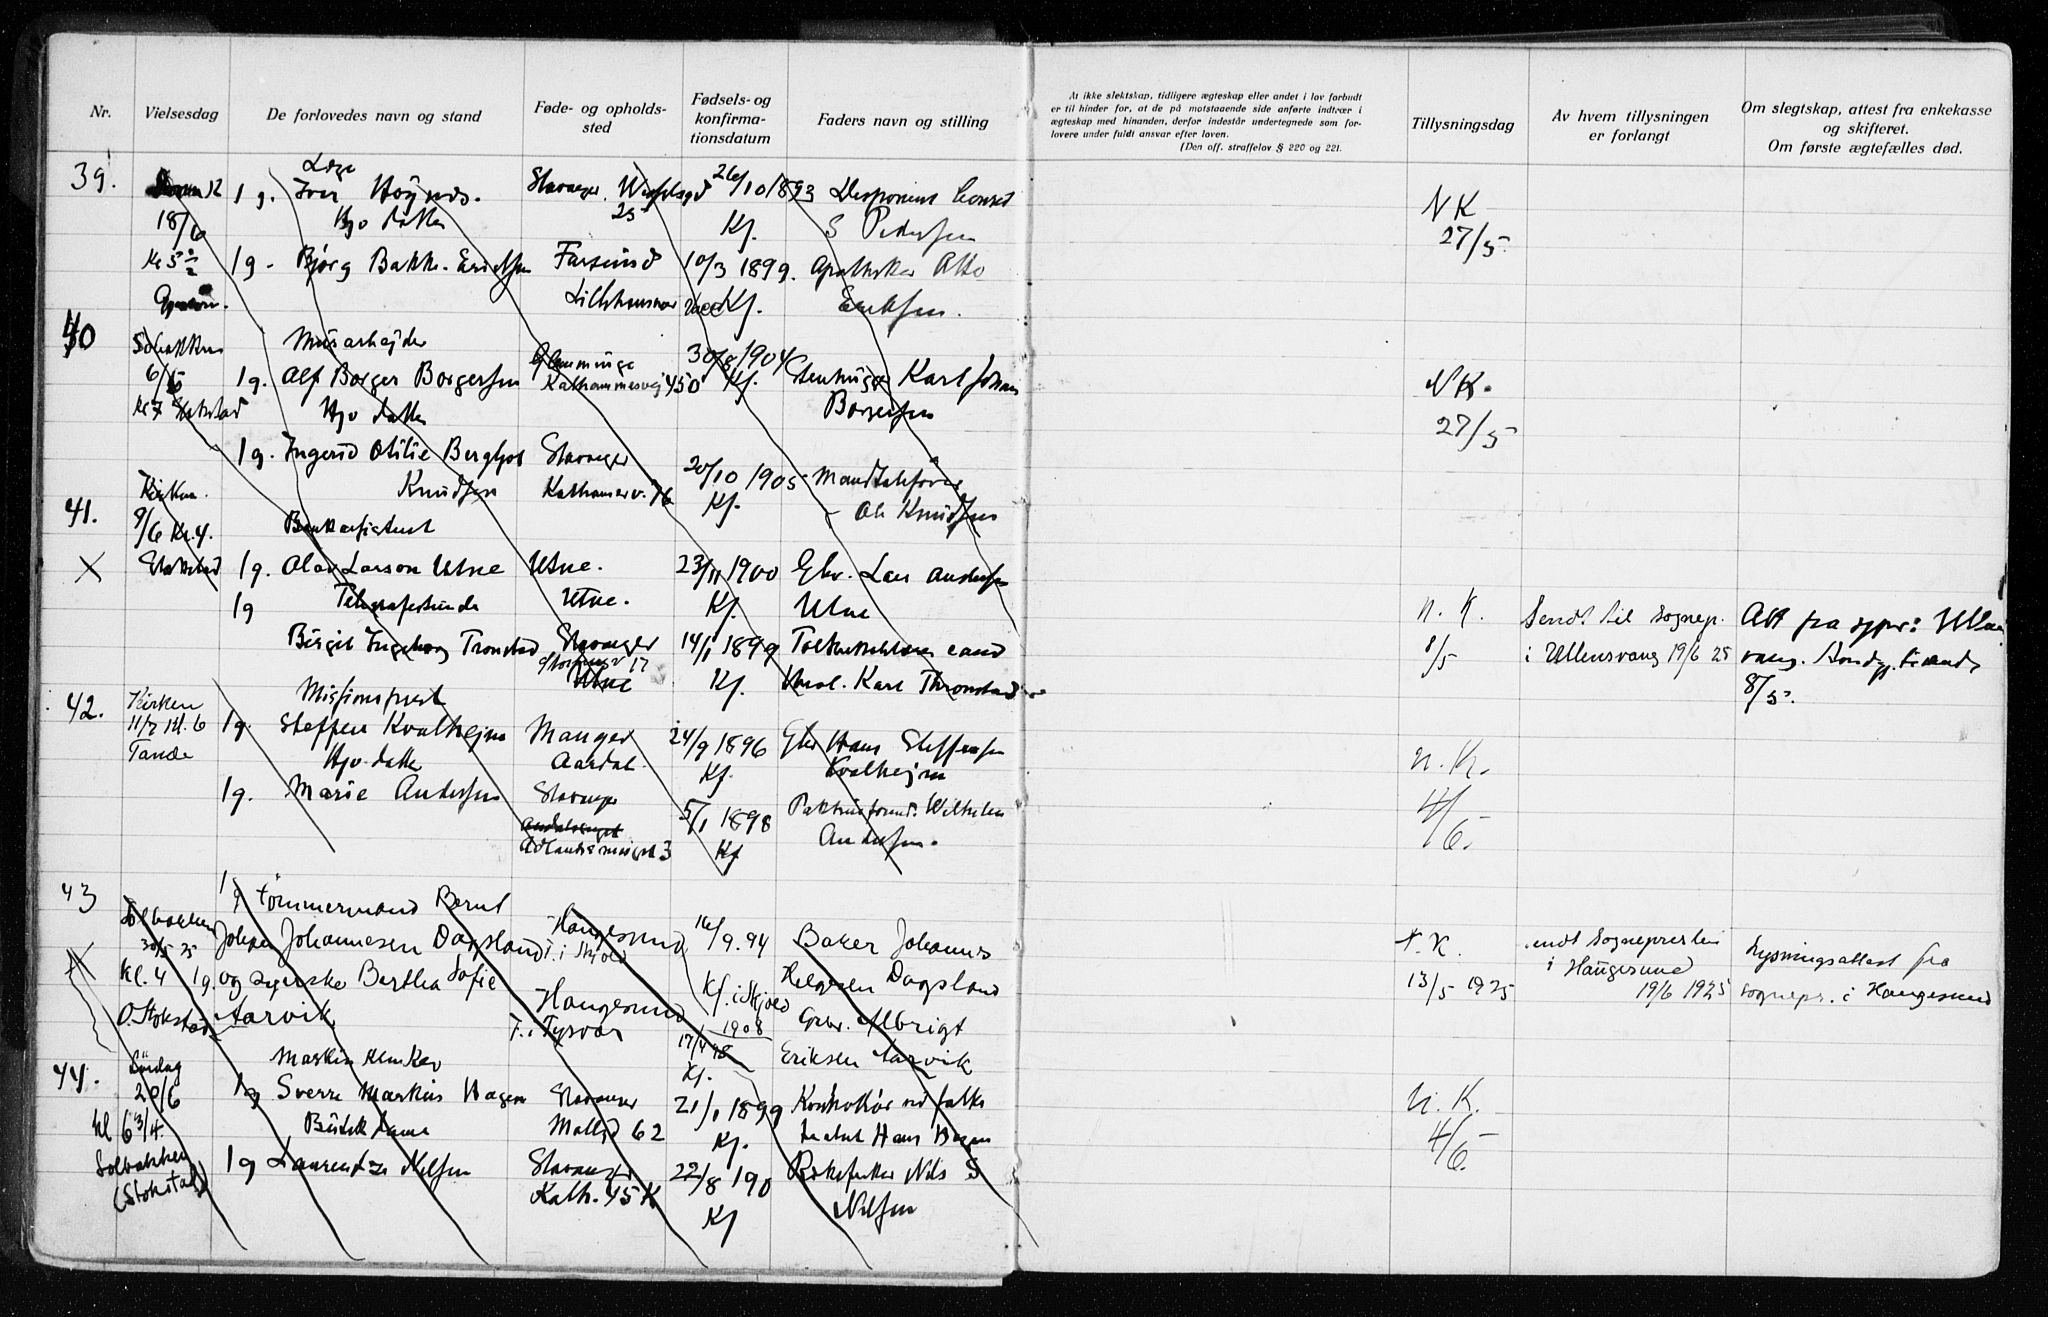 Nr.
Vielsesdag
De forlovedes navn og stand
Føde- og opholds-
sted
Fødsels- og
konfirma-
tionsdatum
Faders navn og stilling
At ikke slektskap, tidligere ægteskap eller andet i lov forbudt
er til hinder for, at de på motstaaende side anførte indtrær i
ægteskap med hinanden, derfor indestår undertegnede som for-
lovere under fuldt ansvar efter loven.
(Den off. straffelov § 220 og 221.
Tillysningsdag
Av hvem tillysningen
er forlangt
Om slegtskap, attest fra enkekasse
og skifteret.
Om første ægtefælles død.
39.
18/6
Kl 5 1/2
Læge
1 g. Iver Høgnes.
Hjv. datter
Stavanger
25
26/10 1893
Kf.
Disponent
S Pedersen
N K
27/5
1 g. Bjørg Bakke-Eriksen
Farsund
Lillehammer
10/3 1899.
Kf.
Apotheker Otto
Eriksen.
40
Solbakken
6/6
Kl 7 Stokstad
Murarbejder
1 g. Alf Borger Borgersen
Hjv datter
Glemminge
450
30/8 1904
Kf.
Stenhugger Karl Johan
Borgersen
N K.
27/5
1 g. Ingerid Otilie Bergljot
Knudsen
Stavanger
76
20/10 1905
Kf.
Ole Knudsen
41.
X
Kirken
9/6 Kl. 4.
Stokstad
Bankassistent
1 g. Olav Larson Utne
Utne.
Utne.
23/11 1900
Kf.
Gbr. Lars Andersen
Utne
n. K.
8/5
Sendt til sognep.
i Ullensvang 19/6 25
Att fra sgpr: Ullens
vang.
8/5.
1g
Birgit Ingeborg Tronstad
Stavanger
17
Utne
14/1 1899
Kf.
cand
Karl Thronstad
42.
Kirken
11/7 Kl. 6
Tande
Missionsprest
1g. Steffen Kvalheim
Hjv. datter
Manger
Aardal.
24/9 1896
Kf.
Gbr Hans Steffensen
Kvalheim
n. K.
4/6.
1g. Marie Andersen
Stavanger
3
5/1 1898
Kf
Wilhelm
Andersen.
43
Solbakken
30/5 25
Kl. 4
O. Stokstad
1g tømmermand Bernt
Johan Johannesen Dagsland
Haugesund
F. i Skjold
16/9.94
Kf. i Skjold
1908
Baker Johannes
Helgesen Dagsland
N. K.
13/5 1925
sendt Sognepresten
i Haugesund
19/6 1925
Lysningsattest fra
sognepr. i Haugesund
1g. og syerske Bertha Sofie
Aarvik
Haugesund
F. i Tysvær
17/4 98
Kf.
Gbr. Albrigt
Eriksen Aarvik
44.
Lørdag
20/6
kl 6 3/4.
Solbakken
(Stokstad)
1g Sverre Markus Hagen
Stavanger
62
21/1 1899
Kf.
Kontrollør ved
Hans Hagen
n. K.
4/6.
Butikdame
1g Laurentze Nilsen
Stavanger
Kath. 45 K
22/8 190
Kf
Nils S
Nilsen